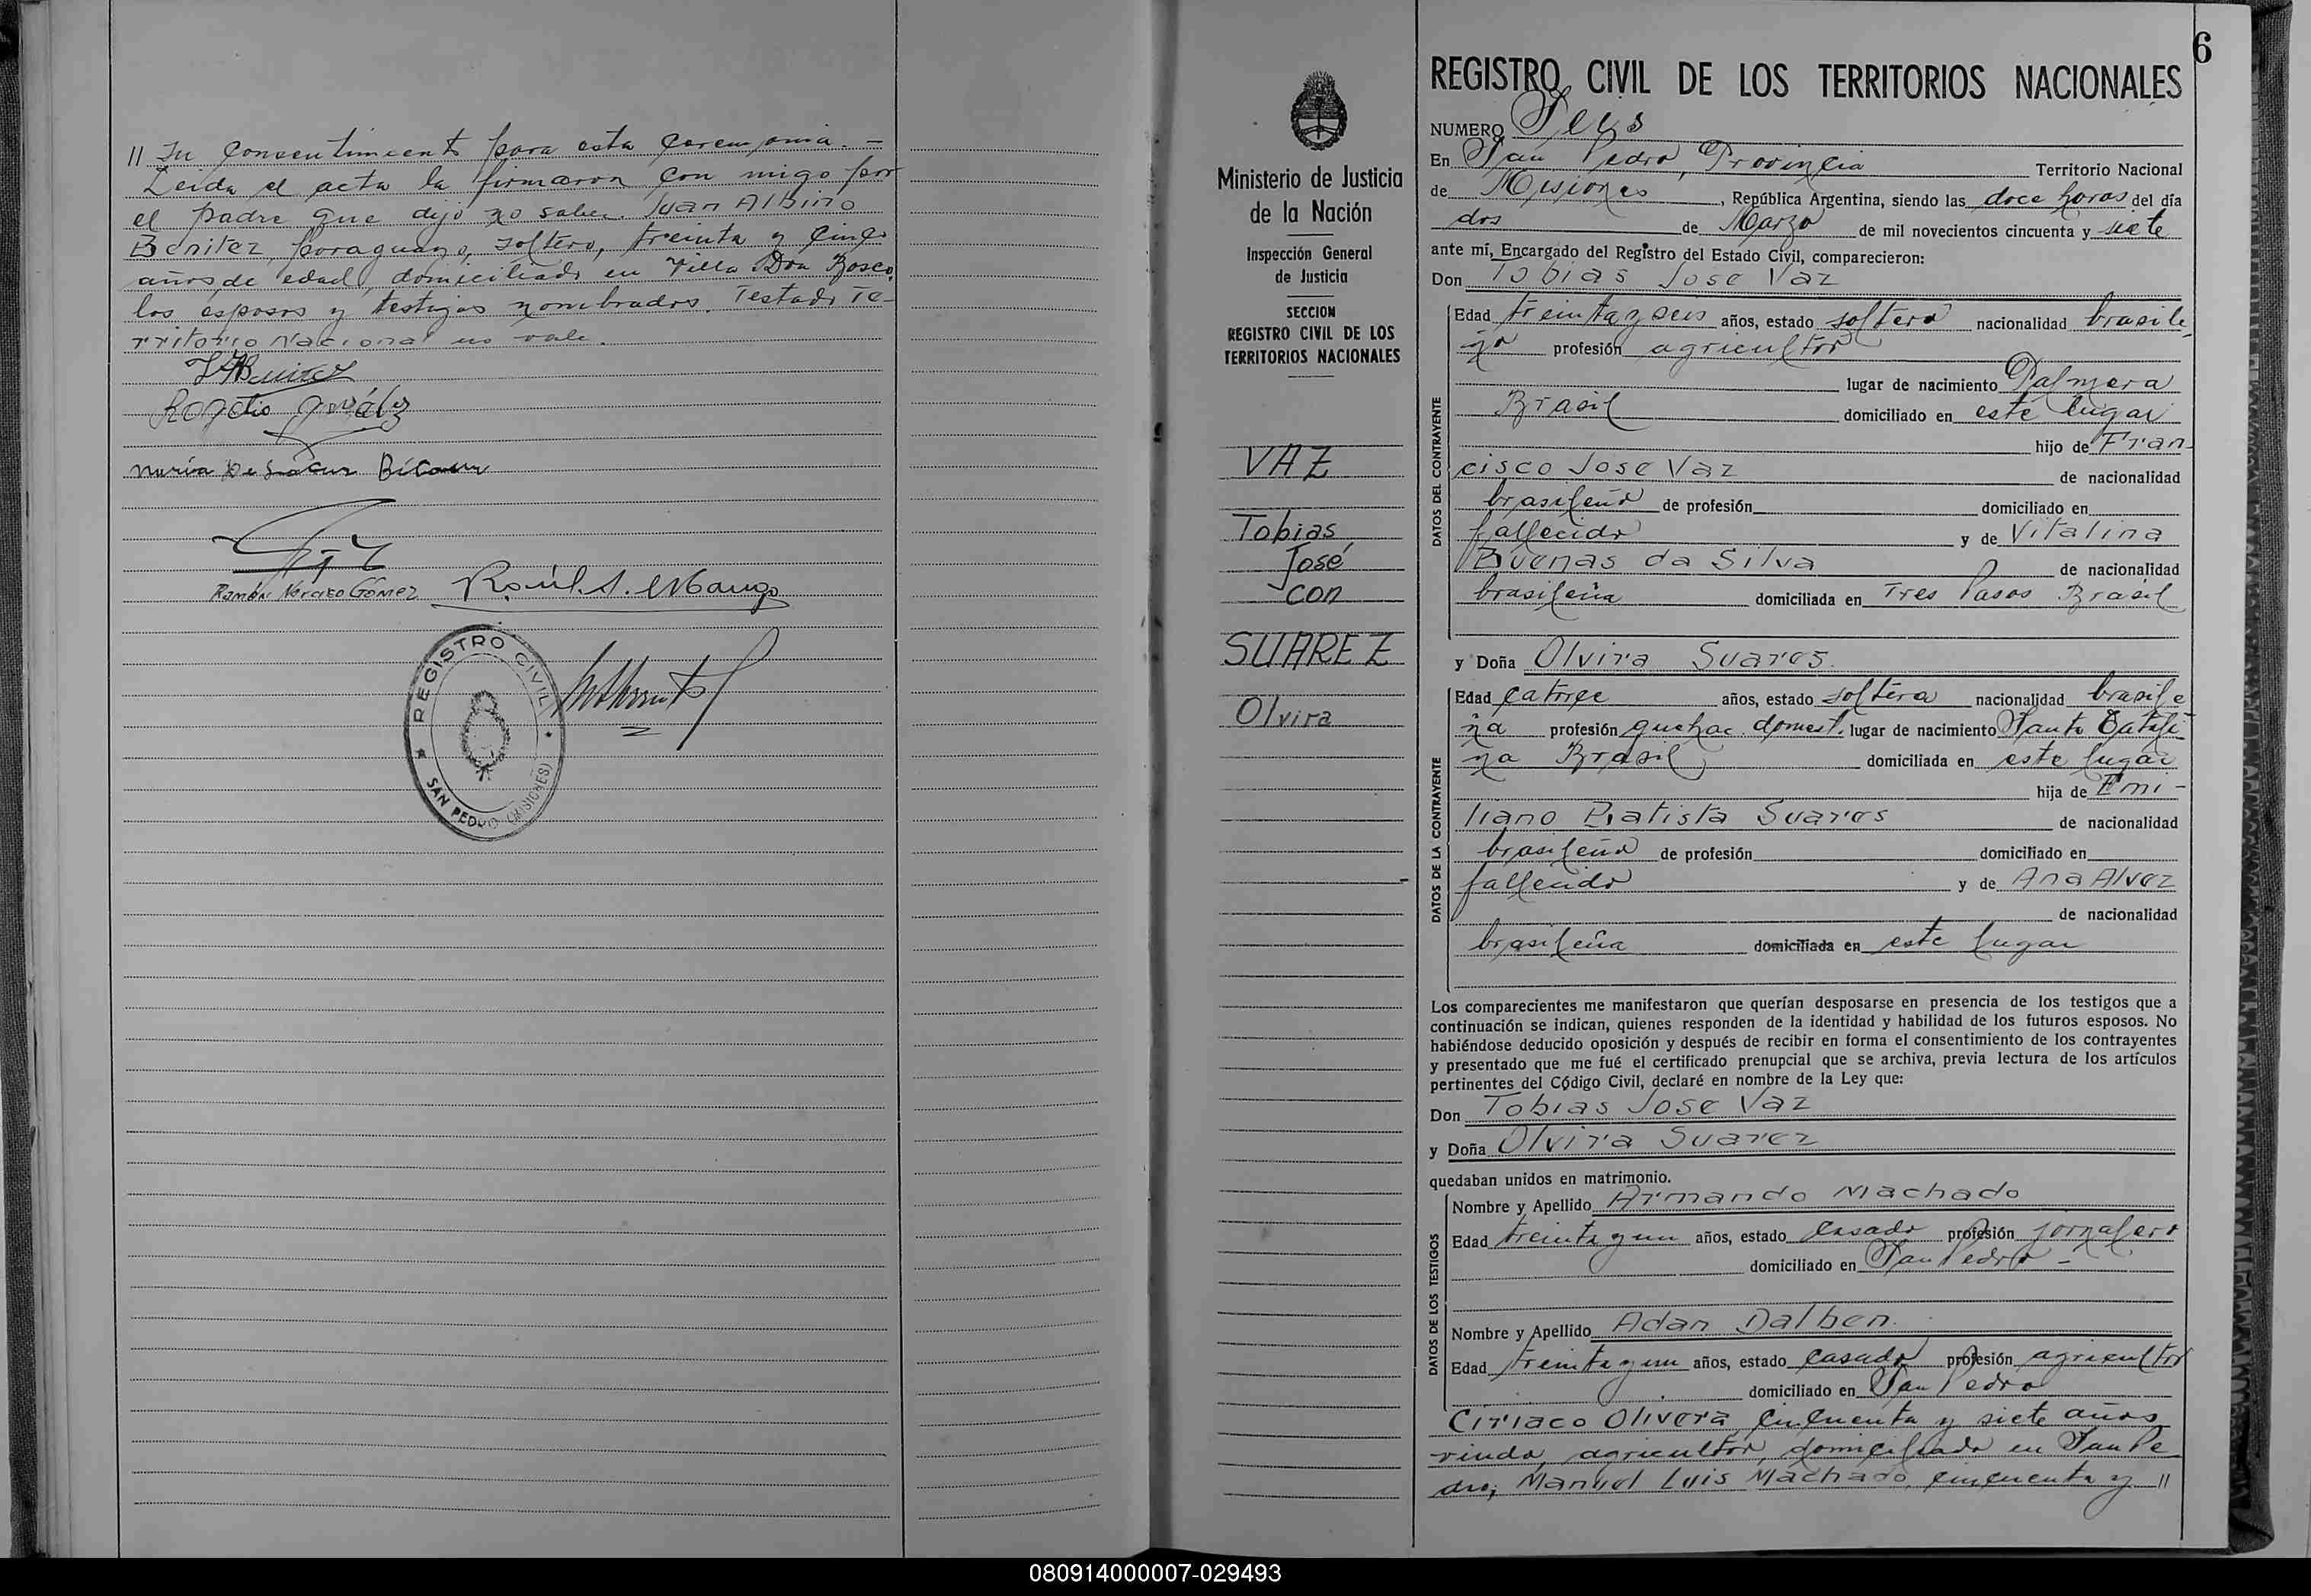 // su consentimiento para esta ceremonia. —
Leida el acta la firmaron con migo por
el padre que dijo no saber. Juan Albino
Benitez, paraguayo, soltero, treinta y cinco
años de edad, domiciliado en Villa Don Bosco,
los esposos y testigos nombrados. Testado Te-
rritorio Nacional no vale.
Rogelio
Maria De
Ramón Gómez Raúl. A.
REGISTRO CIVIL
SAN PEDRO (MISIONES)
Ministerio de Justicia
de la Nación
Inspección General
de Justicia
SECCION
REGISTRO CIVIL DE LOS
TERRITORIOS NACIONALES
VAZ
Tobias
José
con
SUAREZ
Olvira
6
REGISTRO CIVIL DE LOS TERRITORIOS NACIONALES
NUMERO Seis
En San Pedro, Provincia Territorio Nacional
de Misiones, República Argentina, siendo las doce horas del día
dos de Marzo de mil novecientos cincuenta y siete
ante mí, Encargado del Registro del Estado Civil, comparecieron:
Don Tobias Jose Vaz
DATOS DEL CONTRAYENTE
Edad treinta y seis años, estado soltero nacionalidad brasile-
ño profesión agricultor
lugar de nacimiento Palmera
Brasil domiciliado en este lugar
hijo de Fran-
cisco Jose Vaz de nacionalidad
brasileño de profesión domiciliado en
fallecido y de Vitalina
Buenas da Silva de nacionalidad
brasileña domiciliada en Tres Pasos Brasil
y Doña Olvira Suares.
DATOS DE LA CONTRAYENTE
Edad catorce años, estado soltera nacionalidad brasile
ña profesión quehac. domest. lugar de nacimiento Santa Catali-
na Brasil domiciliada en este lugar
hija de Emi-
liano Batista Suares de nacionalidad
brasileño de profesión domiciliado en
fallecido y de Ana Alvez
de nacionalidad
brasileña domiciliada en este lugar
Los comparecientes me manifestaron que querían desposarse en presencia de los testigos que a
continuación se indican, quienes responden de la identidad y habilidad de los futuros esposos. No
habiéndose deducido oposición y después de recibir en forma el consentimiento de los contrayentes
y presentado que me fué el certificado prenupcial que se archiva, previa lectura de los artículos
pertinentes del Código Civil, declaré en nombre de la Ley que:
Don Tobias Jose Vaz
y Doña Olvira Suarez
quedaban unidos en matrimonio.
DATOS DE LOS TESTIGOS
Nombre y Apellido Armando Machado
Edad treinta y un años, estado casado profesión jornalero
domiciliado en San Pedro —
Nombre y Apellido Adan Dalben.
Edad treinta y un años, estado casado profesión agricultor
domiciliado en San Pedro
Ciriaco Olivera cincuenta y siete años
viudo, agricultor, domiciliado en San Pe
dro, Manuel Luis Machado, cincuenta y //
080914000007-029493